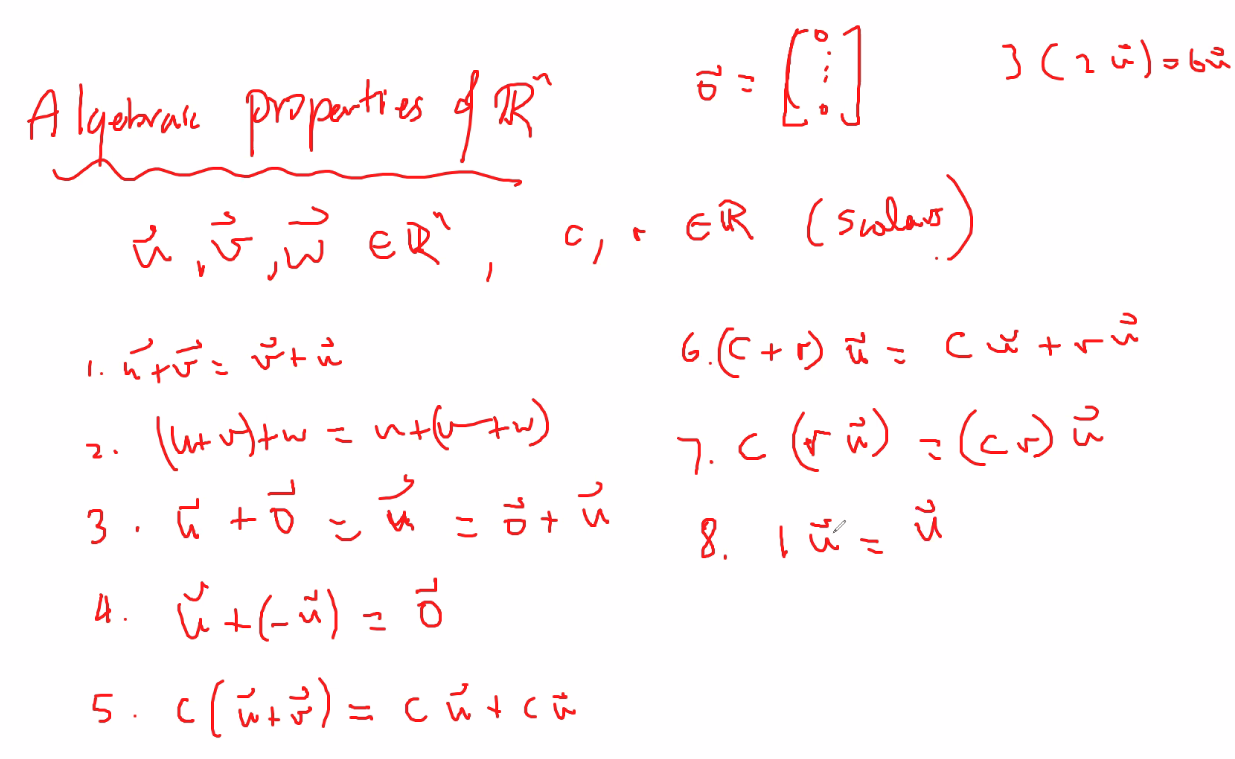 Algebraic properties of ℝⁿ
0⃗ = [0 ⋮ 0]
3(2u⃗)=6u⃗
u⃗, v⃗, w⃗ ∈ ℝⁿ, c, r ∈ ℝ (scalars)
1. u⃗+v⃗ = v⃗+u⃗
2. (u+v)+w = u+(v+w)
3. u⃗ + 0⃗ = u⃗ = 0⃗ + u⃗
4. u⃗ + (-u⃗) = 0⃗
5. c(u⃗+v⃗) = c u⃗ + c u⃗
6. (c+r) u⃗ = c u⃗ + r u⃗
7. c (r u⃗) = (c r) u⃗
8. 1 u⃗ = u⃗